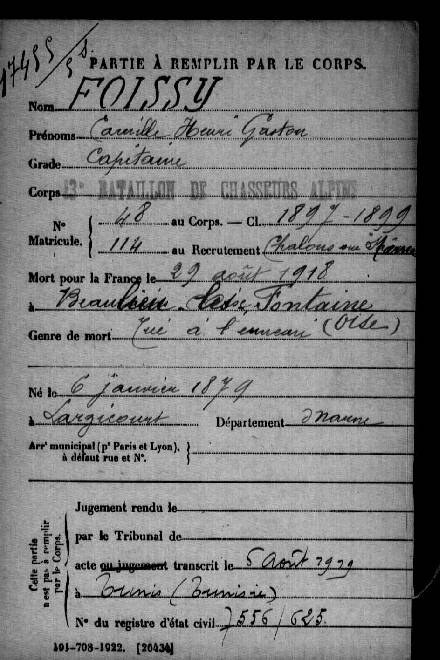 17485
PARTIE À REMPLIR PAR LE CORPS.
Nom FOISSY
Prénoms Camille Henri Gaston
Grade Capitaine
Corps 13e BATAILLON DE CHASSEURS ALPINS
N° Matricule. { 48 au Corps. — Cl. 1897-1899
114 au Recrutement Chalons sur Marne
Mort pour la France le 29 août 1918
à Beaulieu les Fontaine
(Oise)
Genre de mort Tué à l'ennemi
Né le 6 janvier 1879
à Largicourt Département Marne
Arrt municipal (pr Paris et Lyon), à défaut rue et N°. }
Cette partie n'est pas à remplir par le Corps.
Jugement rendu le
par le Tribunal de
acte ou jugement transcrit le 5 août 1919
à Tunis (Tunisie)
N° du registre d'état civil 7556/625.
101-708-1922. [26434]